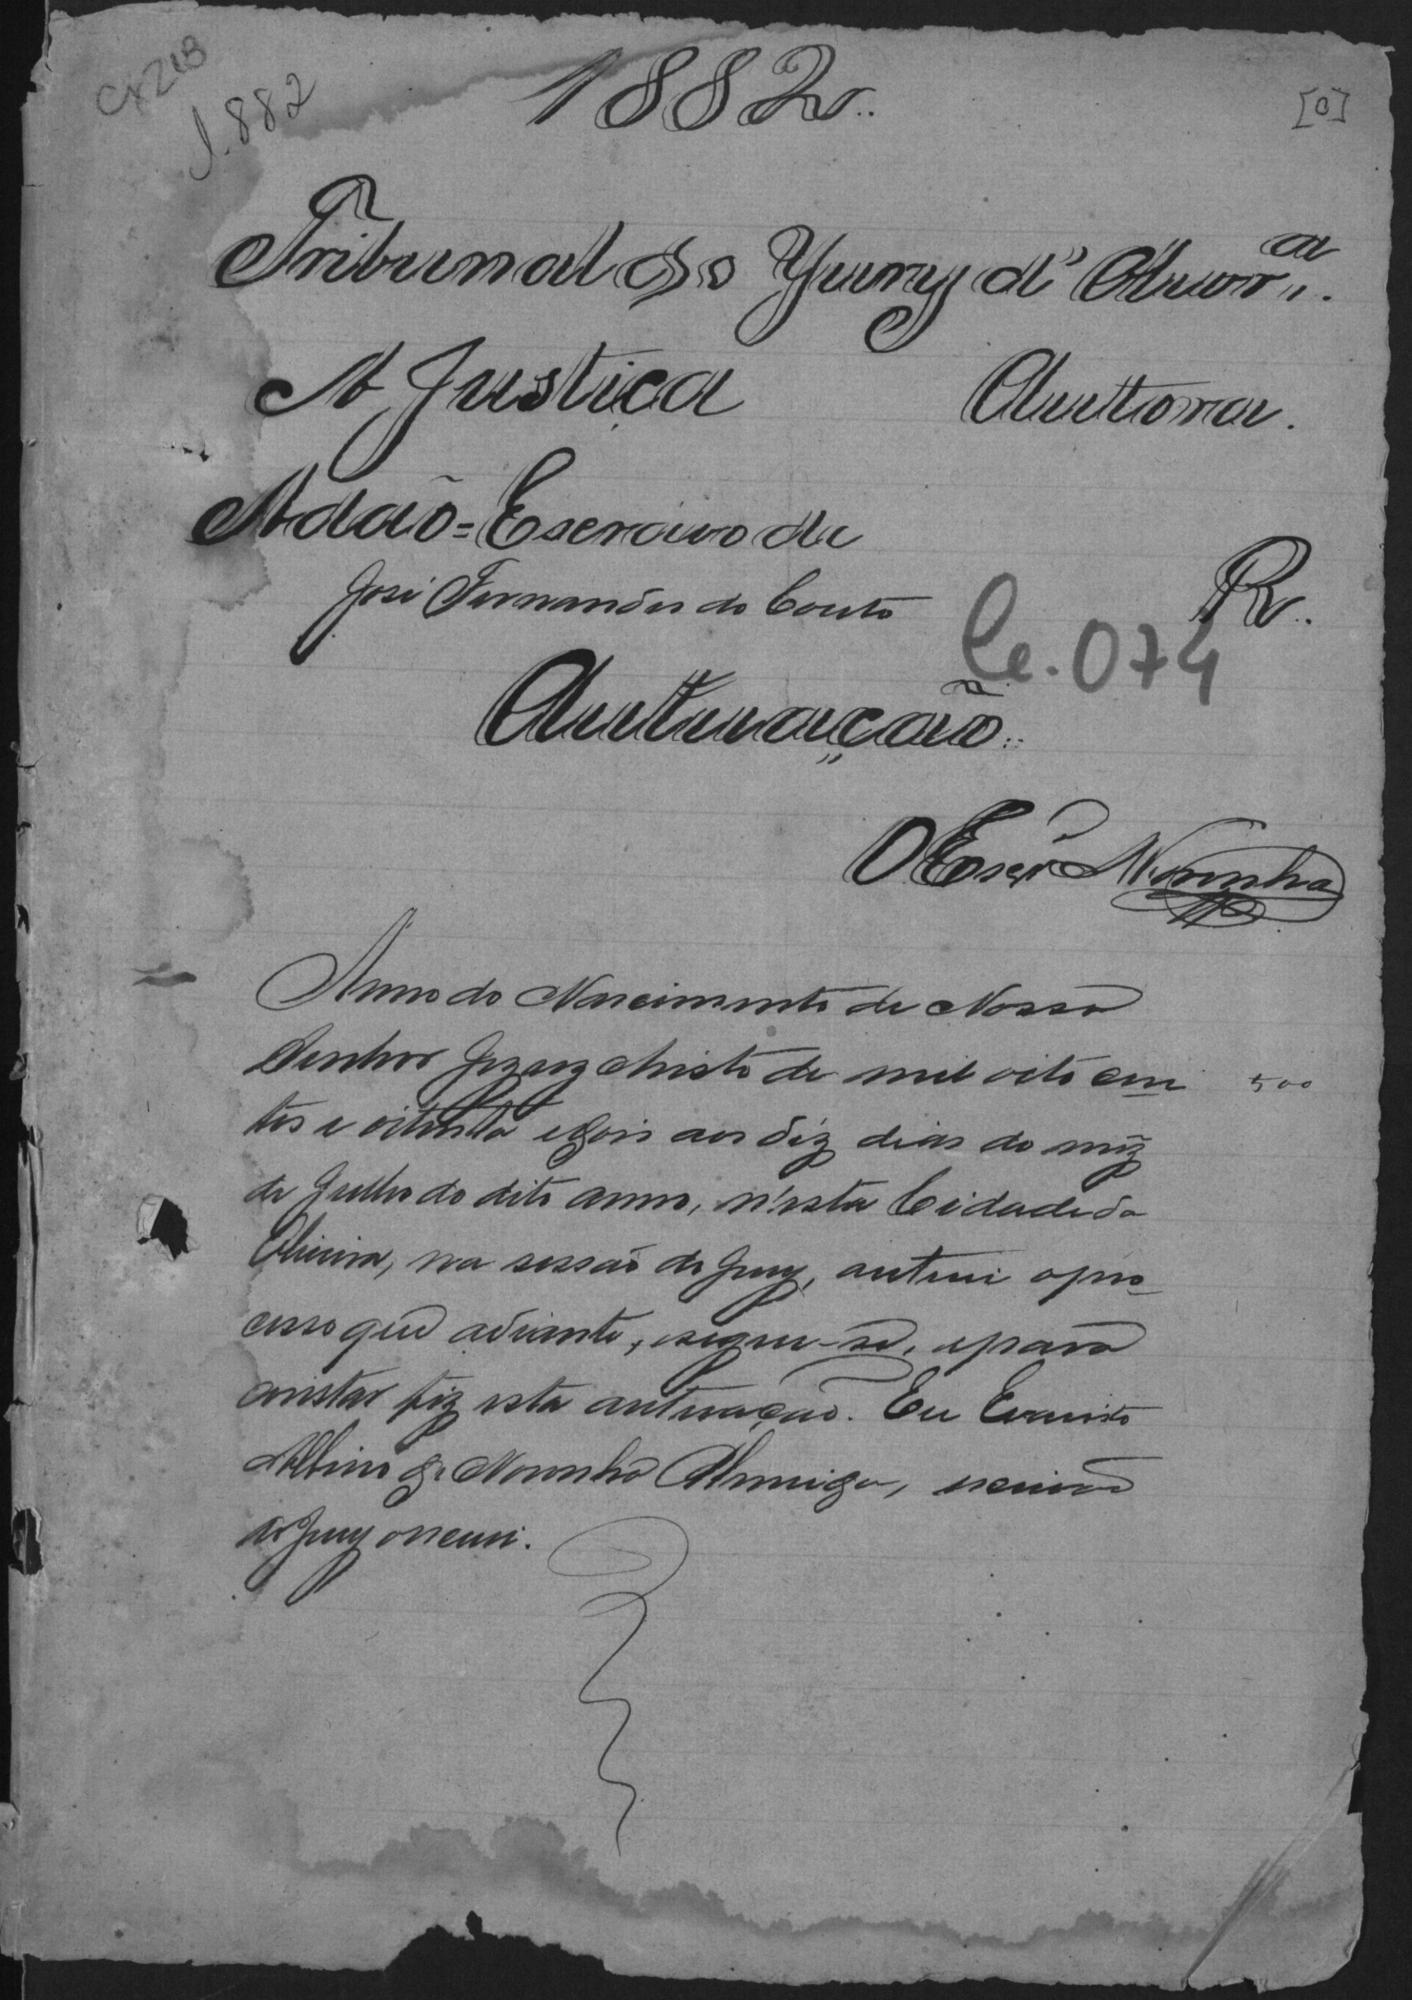 Cx 213
1.882
[0]
1882
Tribunal do Jury d' Olivr.ª
A Justiça Auttora.
Adão = Escravo de
José Fernandes do Couto R.
Ce. 074
Auttuação
O Escr.m Noronha
Anno do Nascimento de Nosso
Senhor Jezuz Christo de mil oito cen
tos e oitenta e dois aos déz dias do mêz
de Julho do dito anno, n'esta Cidade da
Oliveira, na sessão do Jury, autuei o pro
cesso que adiante, segue-se, e para
constar fiz esta autuação. Eu Evaristo
Albino de Noronha Almeida, escrivão
do Jury o escrevi.
500